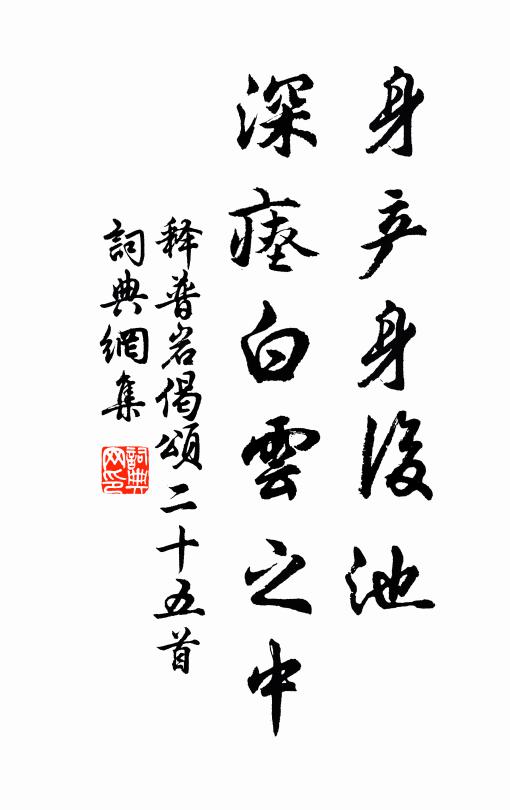 身产身後池
深瘗白雲之中
释普岩偈頌二十五首
詞典網集
詞典网印